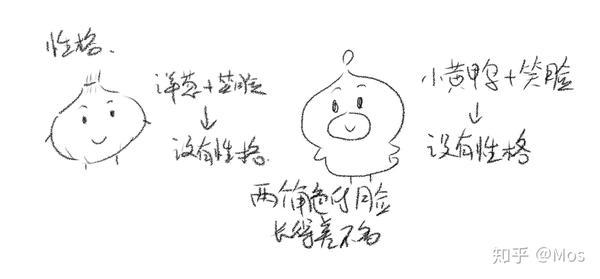 性格.
洋葱+笑脸
↓
没有性格.
小黄鸭+笑脸
↓
没有性格
两个角色的脸
长得差不多
知乎 @Mos